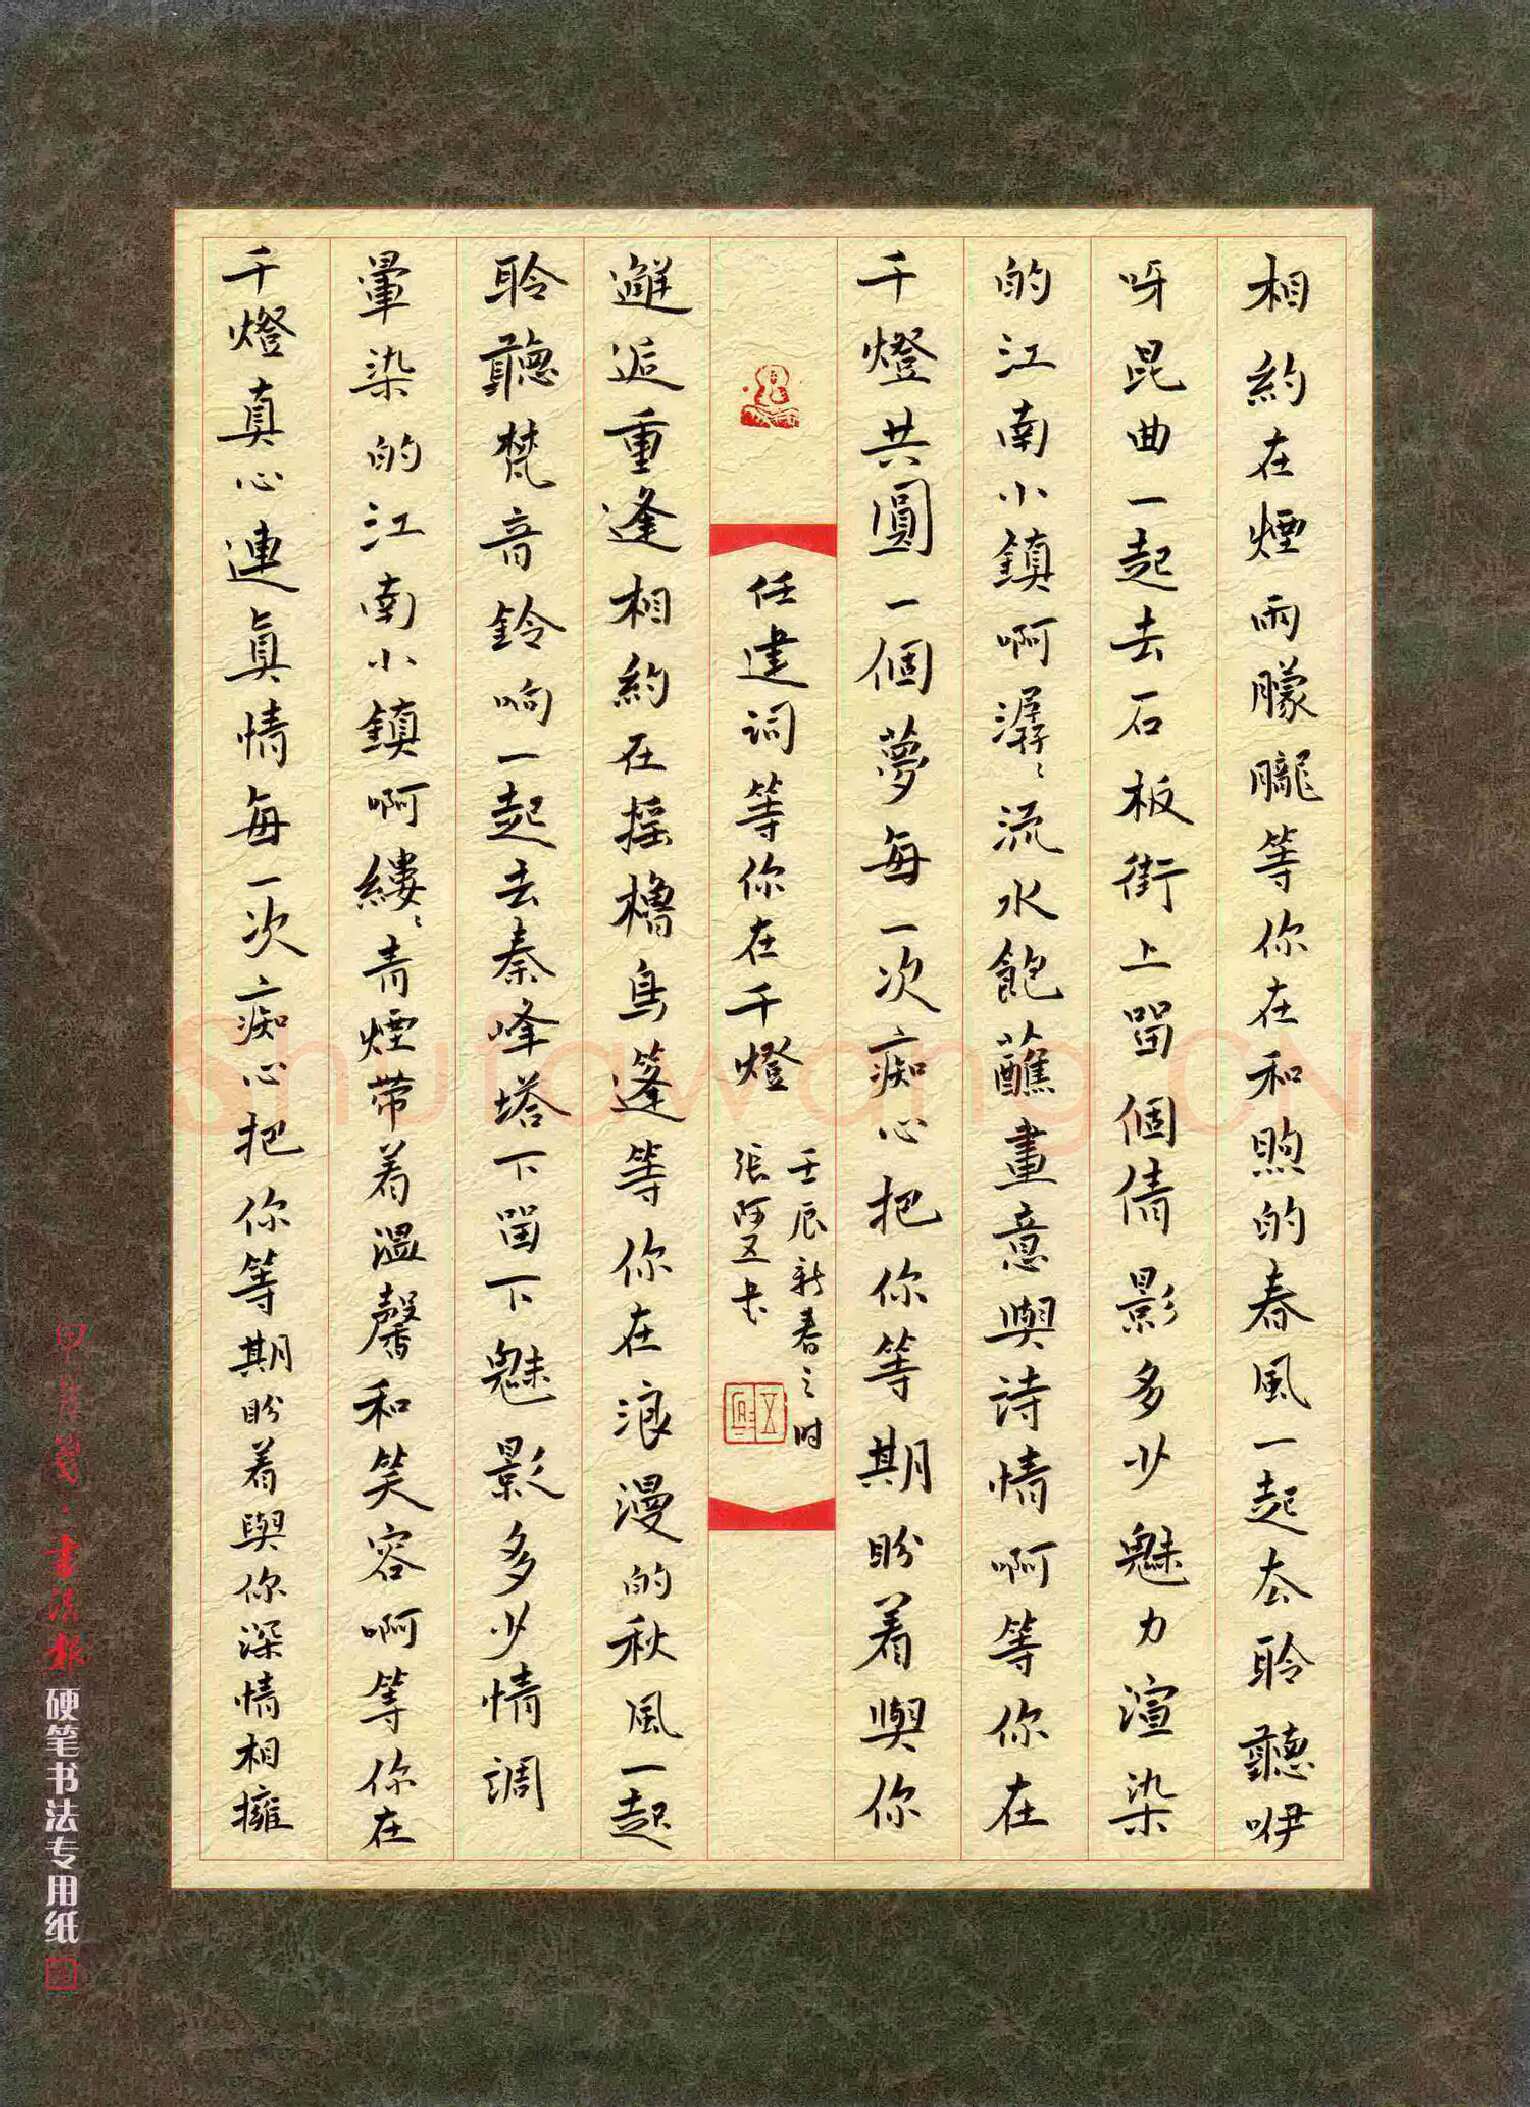 相約在煙雨朦朧等你在和煦的春風一起去聆聽咿
呀昆曲一起去石板街上留個倩影多少魅力渲染
的江南小鎮啊潺〻流水飽蘸畫意與詩情啊等你在
千燈共圓一個夢每一次痴心把你等期盼着與你
任建詞等你在千燈
壬辰新春之时
張阿五书
邂逅重逢相約在摇櫓烏篷等你在浪漫的秋風一起
聆聽梵音鈴响一起去秦峰塔下留下魅影多少情調
暈染的江南小鎮啊縷〻青煙带着溫馨和笑容啊等你在
千燈真心連真情每一次痴心把你等期盼着與你深情相擁
書法報硬笔书法专用纸
Shufawang.CN